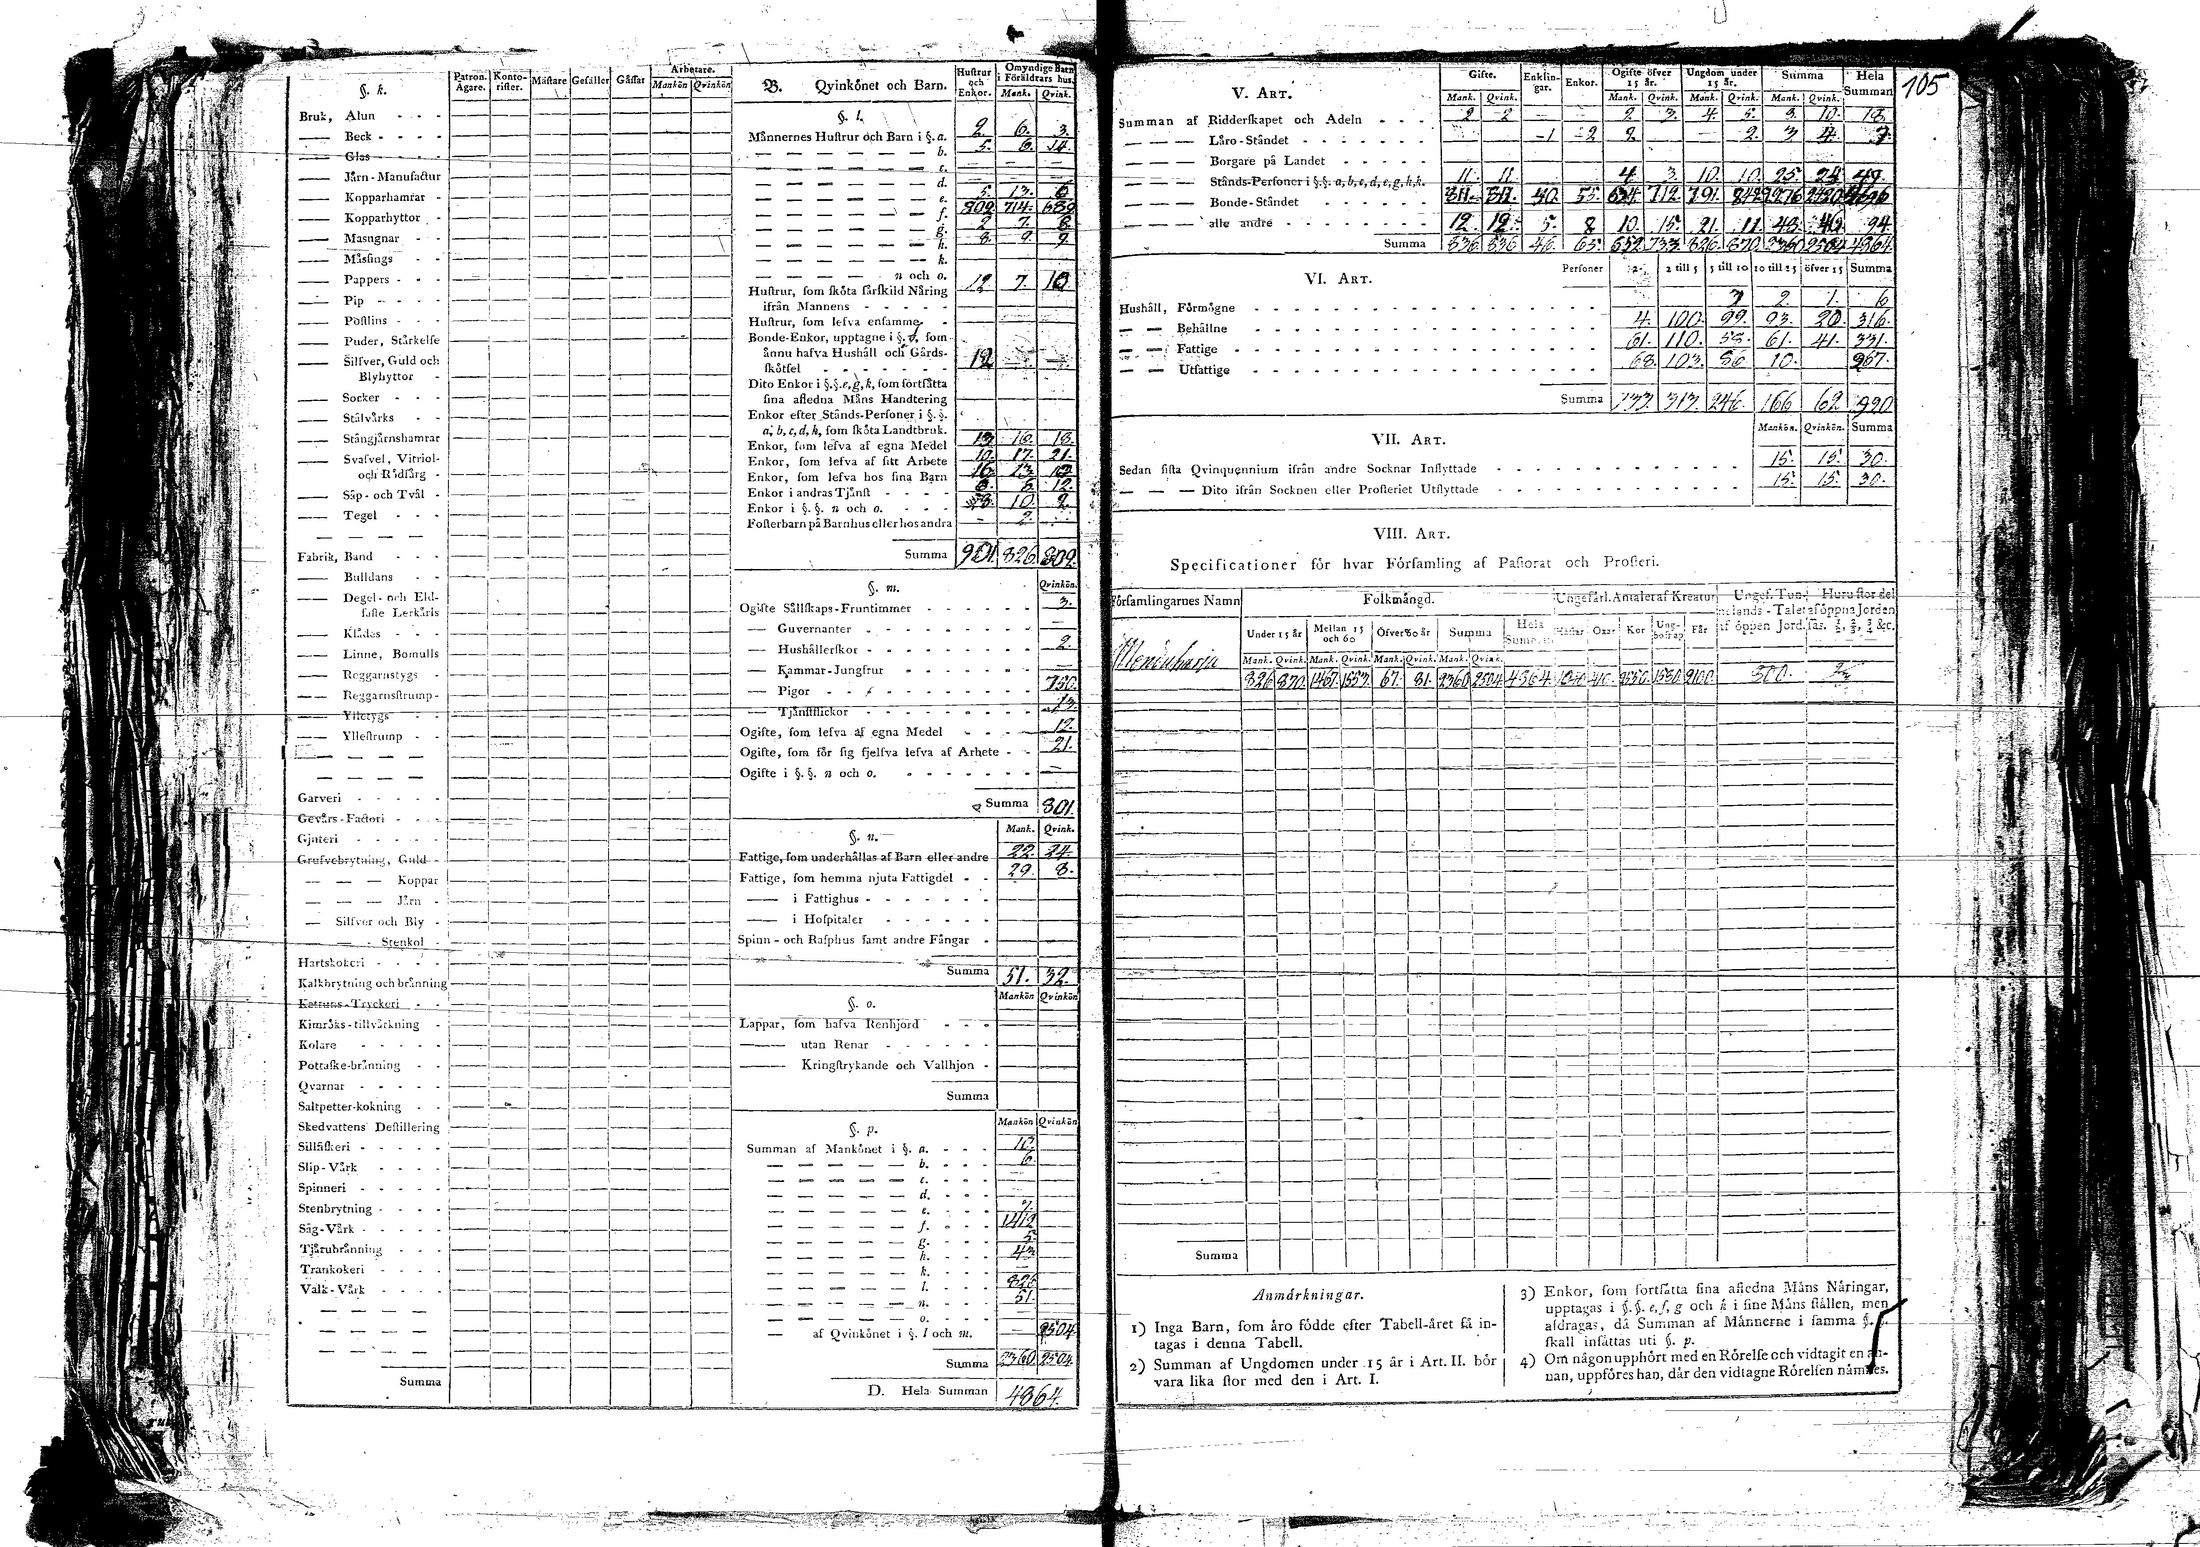 §. k. Patron. Ägare. Konto-rister. Mästare Gesäller Gåssar Arbetare. Mankön Qvinkön
Bruk, Alun - - -
—— Beck - - -
—— Glas - - - -
—— Järn-Manufactur
—— Kopparhamrar -
—— Kopparhyttor -
—— Masugnar - -
—— Mässings - -
—— Pappers - - -
—— Pip - - - -
—— Pottlins - - -
—— Puder, Stärkelse
—— Silfver, Guld och
Blyhyttor -
—— Socker - - -
—— Stålvärks - -
—— Stångjärnshamrar
—— Svafvel, Vitriol-
och Rödfärg -
—— Såp- och Tvål -
—— Tegel - - -
— — — —
Fabrik, Band - - -
—— Bulldans - -
—— Degel- och Eld-
faste Lerkäris
—— Klädes - - -
—— Linne, Bomulls
—— Reggarnstygs -
—— Reggarnsstrump-
—— Ylletygs - -
—— Yllestrump - -
— — — —
— — — —
Garveri - - - - -
Gevärs-Factori - - -
Gjuteri - - - - -
Grufvebrytning, Guld -
— — — Koppar
— — — Järn -
— Silfver och Bly -
— — Stenkol -
Hartskokeri - - - -
Kalkbrytning och bränning
Kattuns-Tryckeri - -
Kimröks-tillvärkning -
Kolare - - - - -
Pottaske-bränning - -
Qvarnar - - - - -
Saltpetter-kokning - -
Skedvattens Destillering
Sillfiskeri - - - - -
Slip-Värk - - - -
Spinneri - - - - -
Stenbrytning - - - -
Såg-Värk - - - -
Tjärubränning - - -
Trankokeri - - - -
Valk-Värk - - - -
— — — —
— — — —
— — — —
Summa
B. Qvinkönet och Barn. Hustrur och Enkor. Omyndige Barn i Föräldrars hus. Mank. Qvink.
§. l.
Männernes Hustrur och Barn i §. a. 2. 6. 3.
— — — — — b. 5. 6. 14.
— — — — — c.
— — — — — d.
— — — — — e. 5. 13. 6
— — — — — f. 809. 714. 689
— — — — — g. 2 7. 8.
— — — — — h. 8. 9. 9.
— — — — — k.
— — — — n och o.
Hustrur, som sköta särskild Näring 12 7. 10
ifrån Mannens - - - - -
Hustrur, som lefva ensamme - -
Bonde-Enkor, upptagne i §. f, som
ännu hafva Hushåll och Gårds-
skötsel - - - - - - - 12
Dito Enkor i §.§. e, g, k, som fortsätta
sina afledna Mäns Handtering
Enkor efter Stånds-Personer i §.§.
a, b, c, d, h, som sköta Landtbruk.
Enkor, som lefva af egna Medel 13 16. 18.
Enkor, som lefva af sitt Arbete 10. 17. 21.
Enkor, som lefva hos sina Barn 16 23
Enkor i andras Tjänst - - - - 12.
Enkor i §.§. n och o. - - - 10. 2
Fosterbarn på Barnhus eller hos andra — 2.
Summa 901. 826. 809.
§. m. Qvinkön.
Ogifte Sällskaps-Fruntimmer - - - - - - 3.
— Guvernanter - - - - - - - -
— Hushållerskor - - - - - - - 2.
— Kammar-Jungfrur - - - - - - —
— Pigor - - - - - - - - - 750.
— Tjänstflickor - - - - - - - - 13
Ogifte, som lefva af egna Medel - - - - 12.
Ogifte, som för sig sjelfva lefva af Arbete - - 21.
Ogifte i §.§. n och o. - - - - - - -
Summa 801.
§. n. Mank. Qvink.
Fattige, som underhållas af Barn eller andre 22. 24.
Fattige, som hemma njuta Fattigdel - - 29. 8.
—— i Fattighus - - - - - - -
—— i Hospitaler - - - - - -
Spinn- och Rasphus samt andre Fångar -
Summa 51. 32.
§. o. Mankön Qvinkön
Lappar, som hafva Renhjord - - -
—— utan Renar - - - - - -
—— Kringstrykande och Vallhjon -
Summa
§. p. Mankön Qvinkön
Summan af Mankönet i §. a. - - - 10
— — — — — b. - - - 6.
— — — — — c. - - -
— — — — — d. - - -
— — — — — e. - - - 7.
— — — — — f. - - - 1412
— — — — — g. - - - 5
— — — — — h. - - - 43
— — — — — k. - - - —
— — — — — l. - - - 826
— — — — — n. - - - 51.
— — — — — o. - - -
— af Qvinkönet i §. l och m. — 2504
Summa 2360. 2504
D. Hela Summan 4864.
105
V. ART. Gifte. Mank. Qvink. Enklin-gar. Enkor. Ogifte öfver 15 år. Mank. Qvink. Ungdom under 15 år. Mank. Qvink. Summa Mank. Qvink. Hela Summan
Summan af Ridderskapet och Adeln - - - 2 2 — — 2. 3. 4. 5. 9. 10. 18
— — — Läro-Ståndet - - - - - - - 1 2 2 2. 3 4. 7.
— — — Borgare på Landet - - - - -
— — — Stånds-Personer i §.§. a, b, c, d, e, g, h, k. 11. 11. 4 3. 10. 10. 25 24 49.
— — — Bonde-Ståndet - - - - - - 811. 811. 40. 55. 634. 712. 791. 842. 2276 2420
— — — alle andre - - - - - - - 12. 12. 5. 8 10. 15. 21. 11. 48. 46 94.
Summa 836. 836 46. 65. 652. 733. 826. 870. 2360 2504 4864.
VI. ART. Personer 2. 2 till 5 5 till 10 10 till 15 öfver 15 Summa
Hushåll, Förmögne - - - - - - - - - - 3 2. 1. 6
— — Behållne - - - - - - - - - - 4. 100. 99. 93. 20. 316.
— — Fattige - - - - - - - - - - 61. 110. 58. 61. 41. 331.
— — Utfattige - - - - - - - - - - 68. 103. 86 10. 267.
Summa 133. 313. 246. 166 62. 990.
VII. ART. Mankön. Qvinkön. Summa
Sedan sista Qvinquennium ifrån andre Socknar Inflyttade - - - - - - - 15. 15. 30.
— — — Dito ifrån Socknen eller Prosteriet Utflyttade - - - - - - - 15. 15. 30.
VIII. ART.
Specificationer för hvar Församling af Pastorat och Prosteri.
Församlingarnes Namn Folkmängd. Ungefärl. Antalet af Kreatur Ungef. Tun-nelands-Talet af öppen Jord. Huru stor del af öppna Jorden sås. ½, ⅔, ¾ &c.
Under 15 år Mellan 15 och 60 Öfver 60 år Summa Hela Summan Hästar Oxar Kor Ung-boskap Får
Mank. Qvink. Mank. Qvink. Mank. Qvink. Mank. Qvink.
826 870. 1467. 1553. 67. 81. 2360. 2504. 4864. 410. 2550. 1530. 2100. 300. ⅔
Summa
Anmärkningar.
1) Inga Barn, som äro födde efter Tabell-året få in-
tagas i denna Tabell.
2) Summan af Ungdomen under 15 år i Art. II. bör
vara lika stor med den i Art. I.
3) Enkor, som fortsätta sina afledna Mäns Näringar,
upptagas i §.§. e, f, g och k i sine Mäns ställen, men
afdragas, då Summan af Männerne i samma §.§.
skall insättas uti §. p.
4) Om någon upphört med en Rörelse och vidtagit en an-
nan, uppföres han, där den vidtagne Rörelsen nämnes.